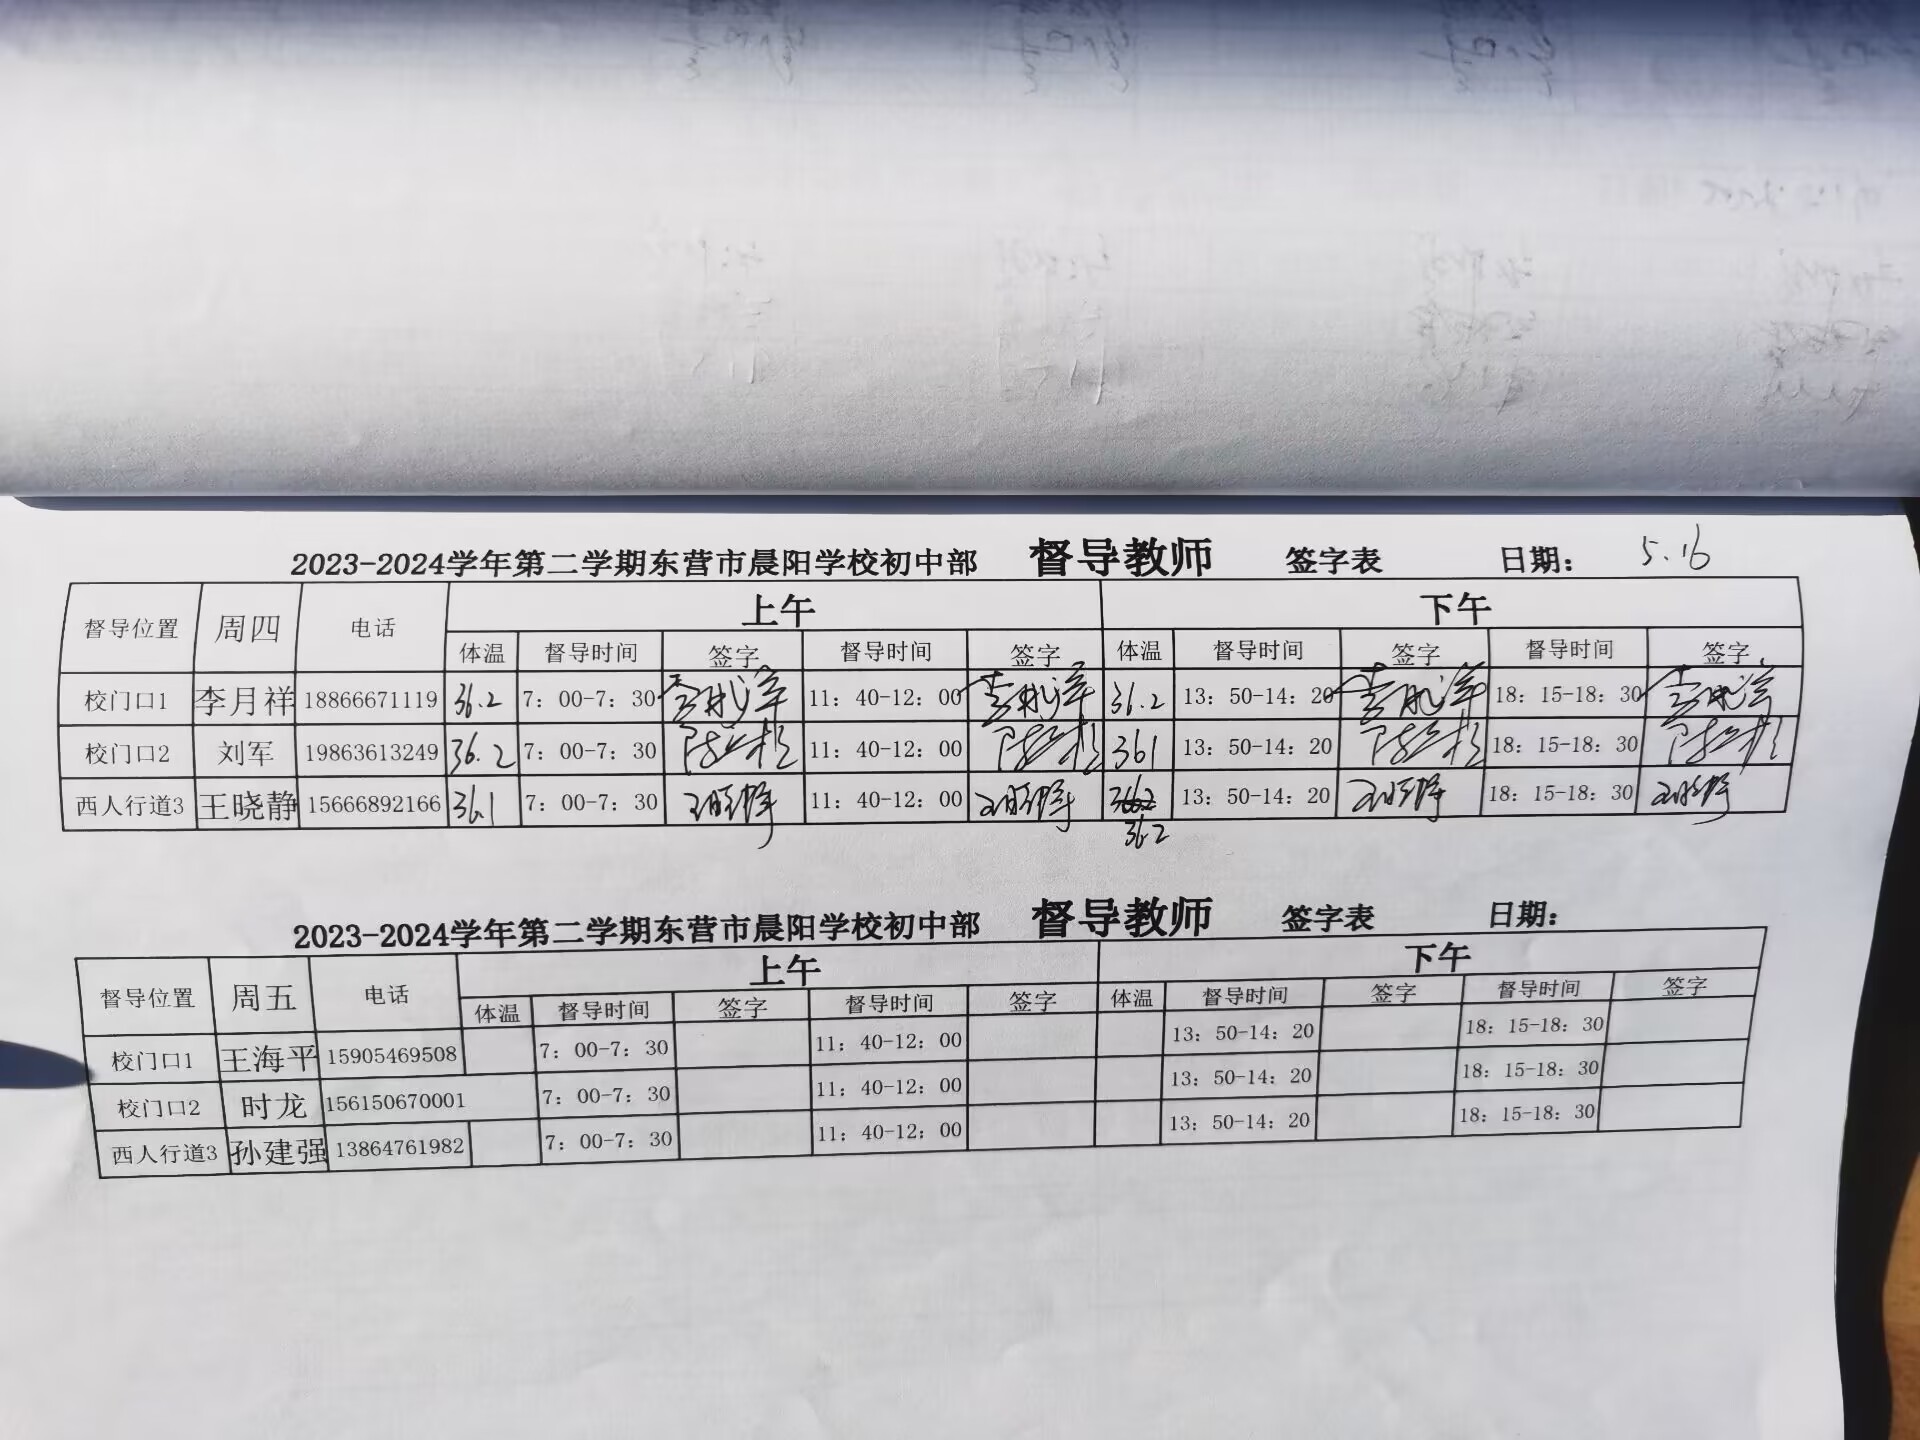 2023-2024学年第二学期东营市晨阳学校初中部 督导教师 签字表 日期： 5.16
督导位置 周四 电话 上午 下午
体温 督导时间 签字 督导时间 签字 体温 督导时间 签字 督导时间 签字
校门口1 李月祥 18866671119 36.2 7：00-7：30 11：40-12：00 36.2 13：50-14：20 18：15-18：30
校门口2 刘军 19863613249 36.2 7：00-7：30 11：40-12：00 361 13：50-14：20 18：15-18：30
西人行道3 王晓静 15666892166 36.1 7：00-7：30 王晓静 11：40-12：00 王晓静 13：50-14：20 王晓静 18：15-18：30 王晓静
36.2
2023-2024学年第二学期东营市晨阳学校初中部 督导教师 签字表 日期：
督导位置 周五 电话 上午 下午
体温 督导时间 签字 督导时间 签字 体温 督导时间 签字 督导时间 签字
校门口1 王海平 15905469508 7：00-7：30 11：40-12：00 13：50-14：20 18：15-18：30
校门口2 时龙 156150670001 7：00-7：30 11：40-12：00 13：50-14：20 18：15-18：30
西人行道3 孙建强 13864761982 7：00-7：30 11：40-12：00 13：50-14：20 18：15-18：30